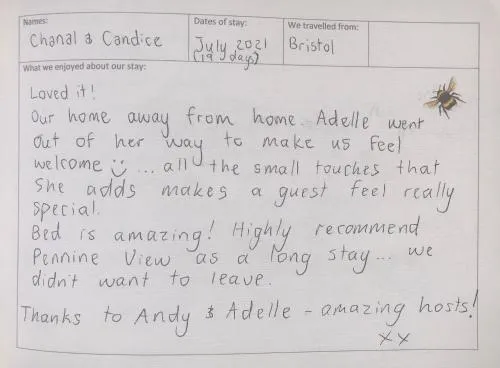 Names: Dates of stay: We travelled from:
Chanal & Candice July 2021 Bristol
(19 days)
What we enjoyed about our stay:
Loved it!
Our home away from home. Adelle went
out of her way to make us feel
welcome ... all the small touches that
she adds makes a guest feel really
special.
Bed is amazing! Highly recommend
Pennine View as a long stay... we
didn't want to leave.
Thanks to Andy & Adelle - amazing hosts!
xx